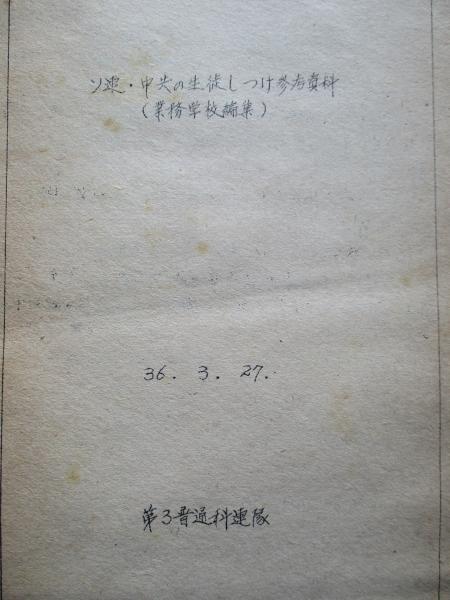 ソ連・中共の生徒しつけ参考資料
(業務学校編集)
36. 3. 27.
第3普通科連隊